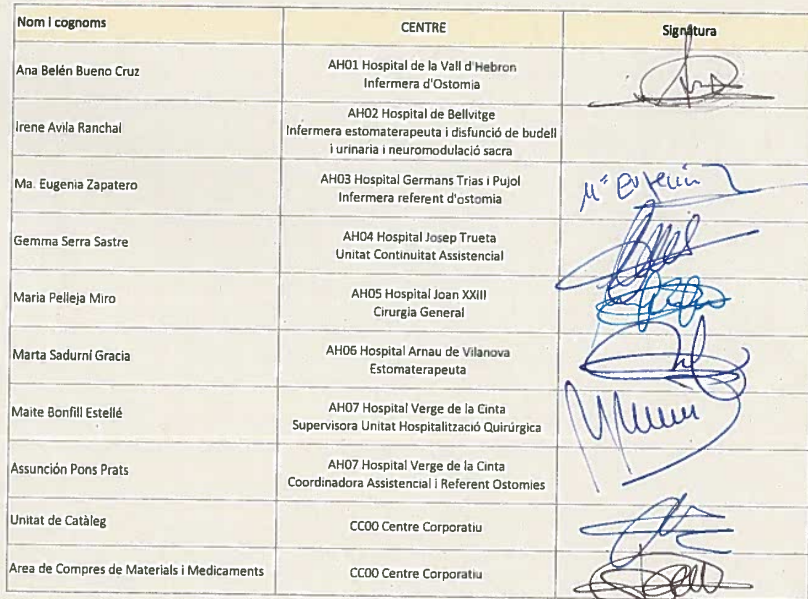 Nom i cognoms
CENTRE
Signatura
Ana Belén Bueno Cruz
AH01 Hospital de la Vall d'Hebron
Infermera d'Ostomia
Irene Avila Ranchal
AH02 Hospital de Bellvitge
Infermera estomaterapeuta i disfunció de budell
i urinaria i neuromodulació sacra
Ma. Eugenia Zapatero
AH03 Hospital Germans Trias i Pujol
Infermera referent d'ostomia
Mª Eugenia
Gemma Serra Sastre
AH04 Hospital Josep Trueta
Unitat Continuitat Assistencial
Maria Pelleja Miro
AH05 Hospital Joan XXIII
Cirurgia General
Marta Sadurní Gracia
AH06 Hospital Arnau de Vilanova
Estomaterapeuta
Maite Bonfill Estellé
AH07 Hospital Verge de la Cinta
Supervisora Unitat Hospitalització Quirúrgica
Assunción Pons Prats
AH07 Hospital Verge de la Cinta
Coordinadora Assistencial i Referent Ostomies
Unitat de Catàleg
CC00 Centre Corporatiu
Area de Compres de Materials i Medicaments
CC00 Centre Corporatiu